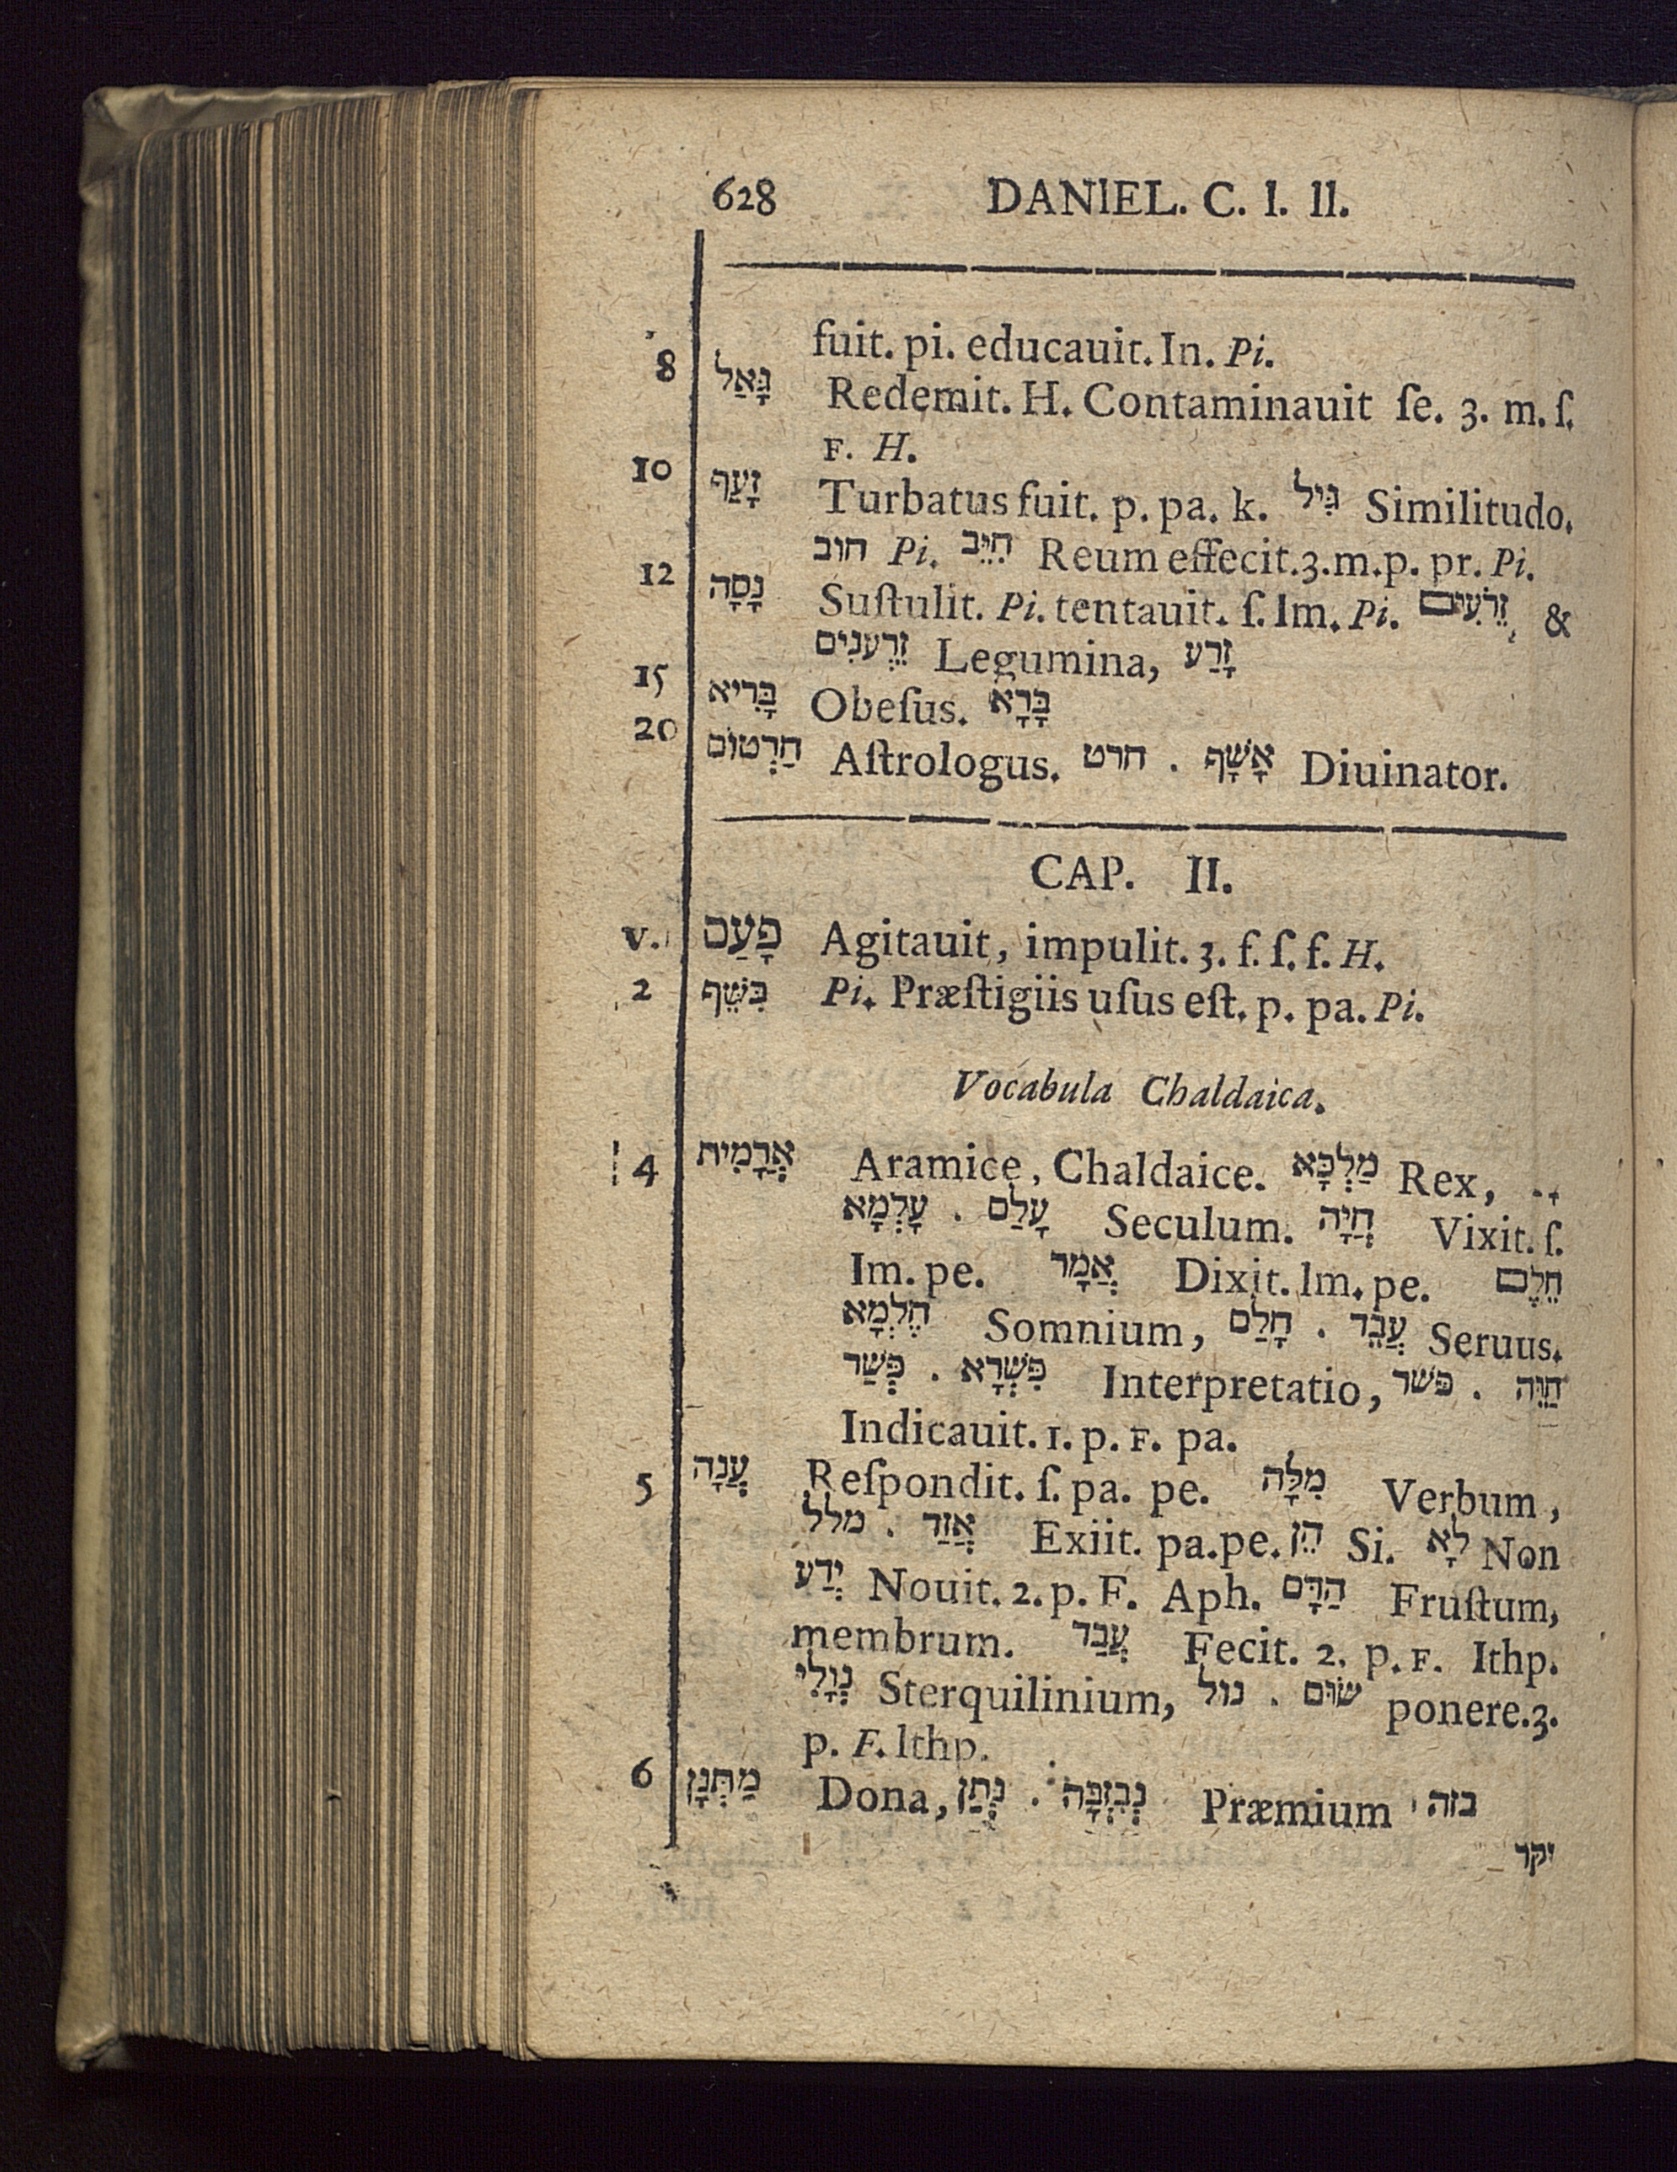 628 DANIEL. C. I. II.
fuit. pi. educauit. In. Pi.
8 גָּאַל Redemit. H. Contaminauit ſe. 3. m. ſ.
F. H.
10 זָעַף Turbatus fuit. p. pa. k. גִּיל Similitudo.
חוב Pi. חִיֵּב Reum effecit. 3. m. p. pr. Pi.
12 נָסָה Suſtulit. Pi. tentauit. ſ. Im. Pi. זֵרֹעִים &
זֵרְעֹנִים Legumina, זָרַע
15 בָּרִיא Obeſus. בָּרָא
20 חַרְטוֹם Aſtrologus. חרט . אַשָּׁף Diuinator.
CAP. II.
v. פָּעַם Agitauit, impulit. 3. f. ſ. f. H.
2 כִּשֵּׁף Pi. Præſtigiis uſus eſt. p. pa. Pi.
Vocabula Chaldaica.
4 אֲרָמִית Aramice, Chaldaice. מַלְכָּא Rex,
עָלַם . עָלְמָא Seculum. חֲיָה Vixit. ſ.
Im. pe. אֲמָר Dixit. Im. pe. חֵלֶם
חֶלְמָא Somnium, חָלַם . עֲבֵד Seruus.
פְּשַׁר . פִּשְׁרָא Interpretatio, פשר . חַוֵּה
Indicauit. 1. p. F. pa.
5 עֲנָה Reſpondit. ſ. pa. pe. מִלָּה Verbum,
מלל . אֲזַד Exiit. pa. pe. הֵן Si. לָא Non
יְדַע Nouit. 2. p. F. Aph. הַדָּם Fruſtum,
membrum. עֲבַד Fecit. 2. p. F. Ithp.
נְוָלִי Sterquilinium, נול . שׂוּם ponere. 3.
p. F. Ithp.
6 מַתְּנָן Dona, נְתַן . נְבִזְבָּה Præmium בזה
יקר